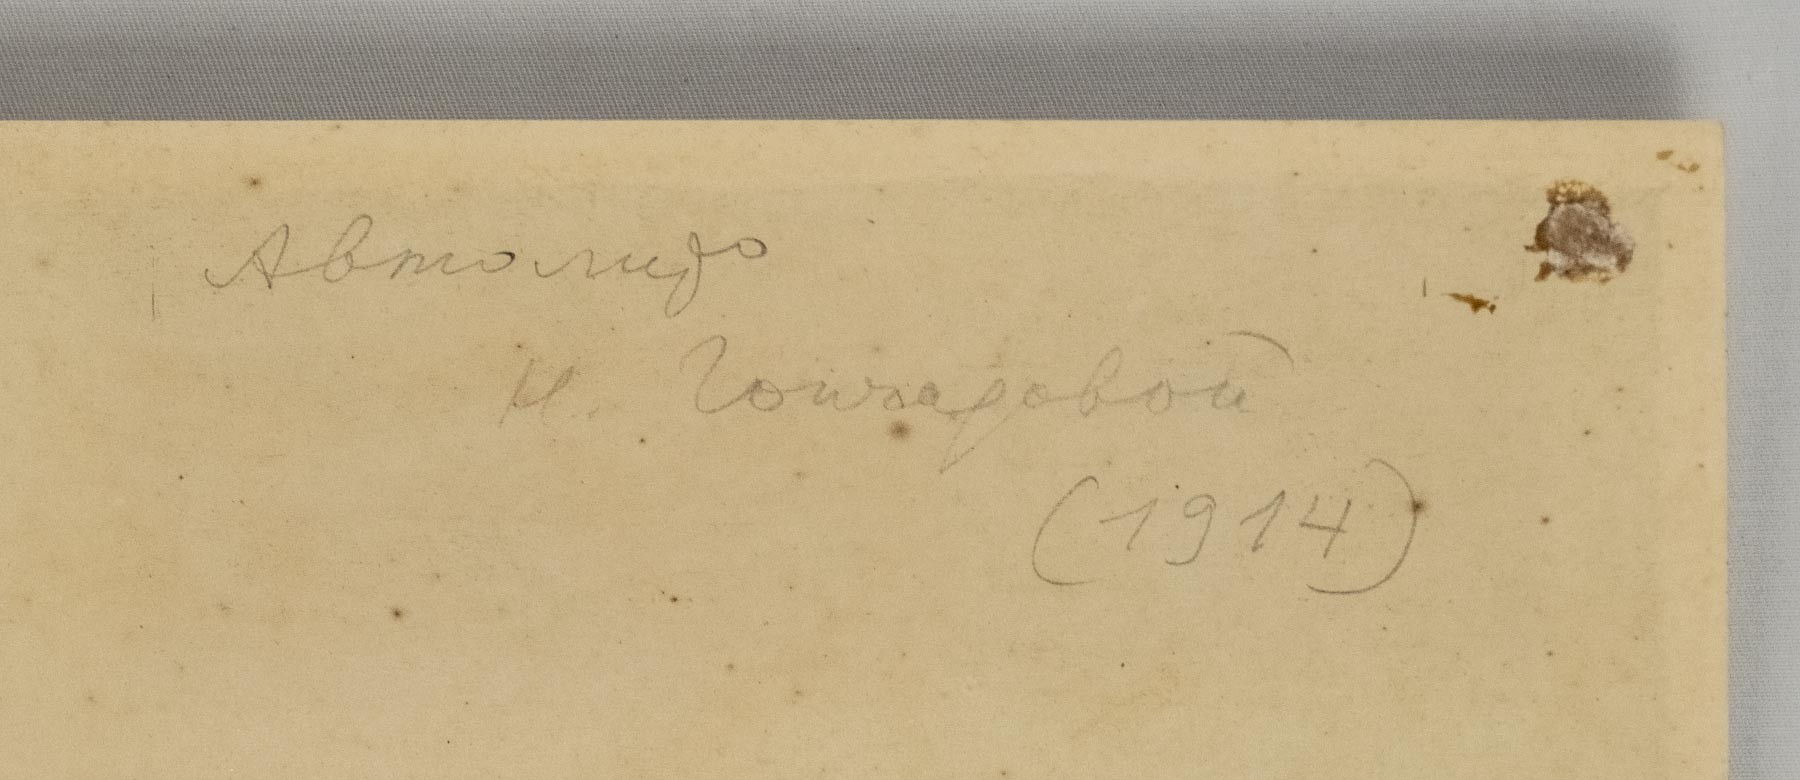 Автолидо
Н. Гончаровой
(1914)